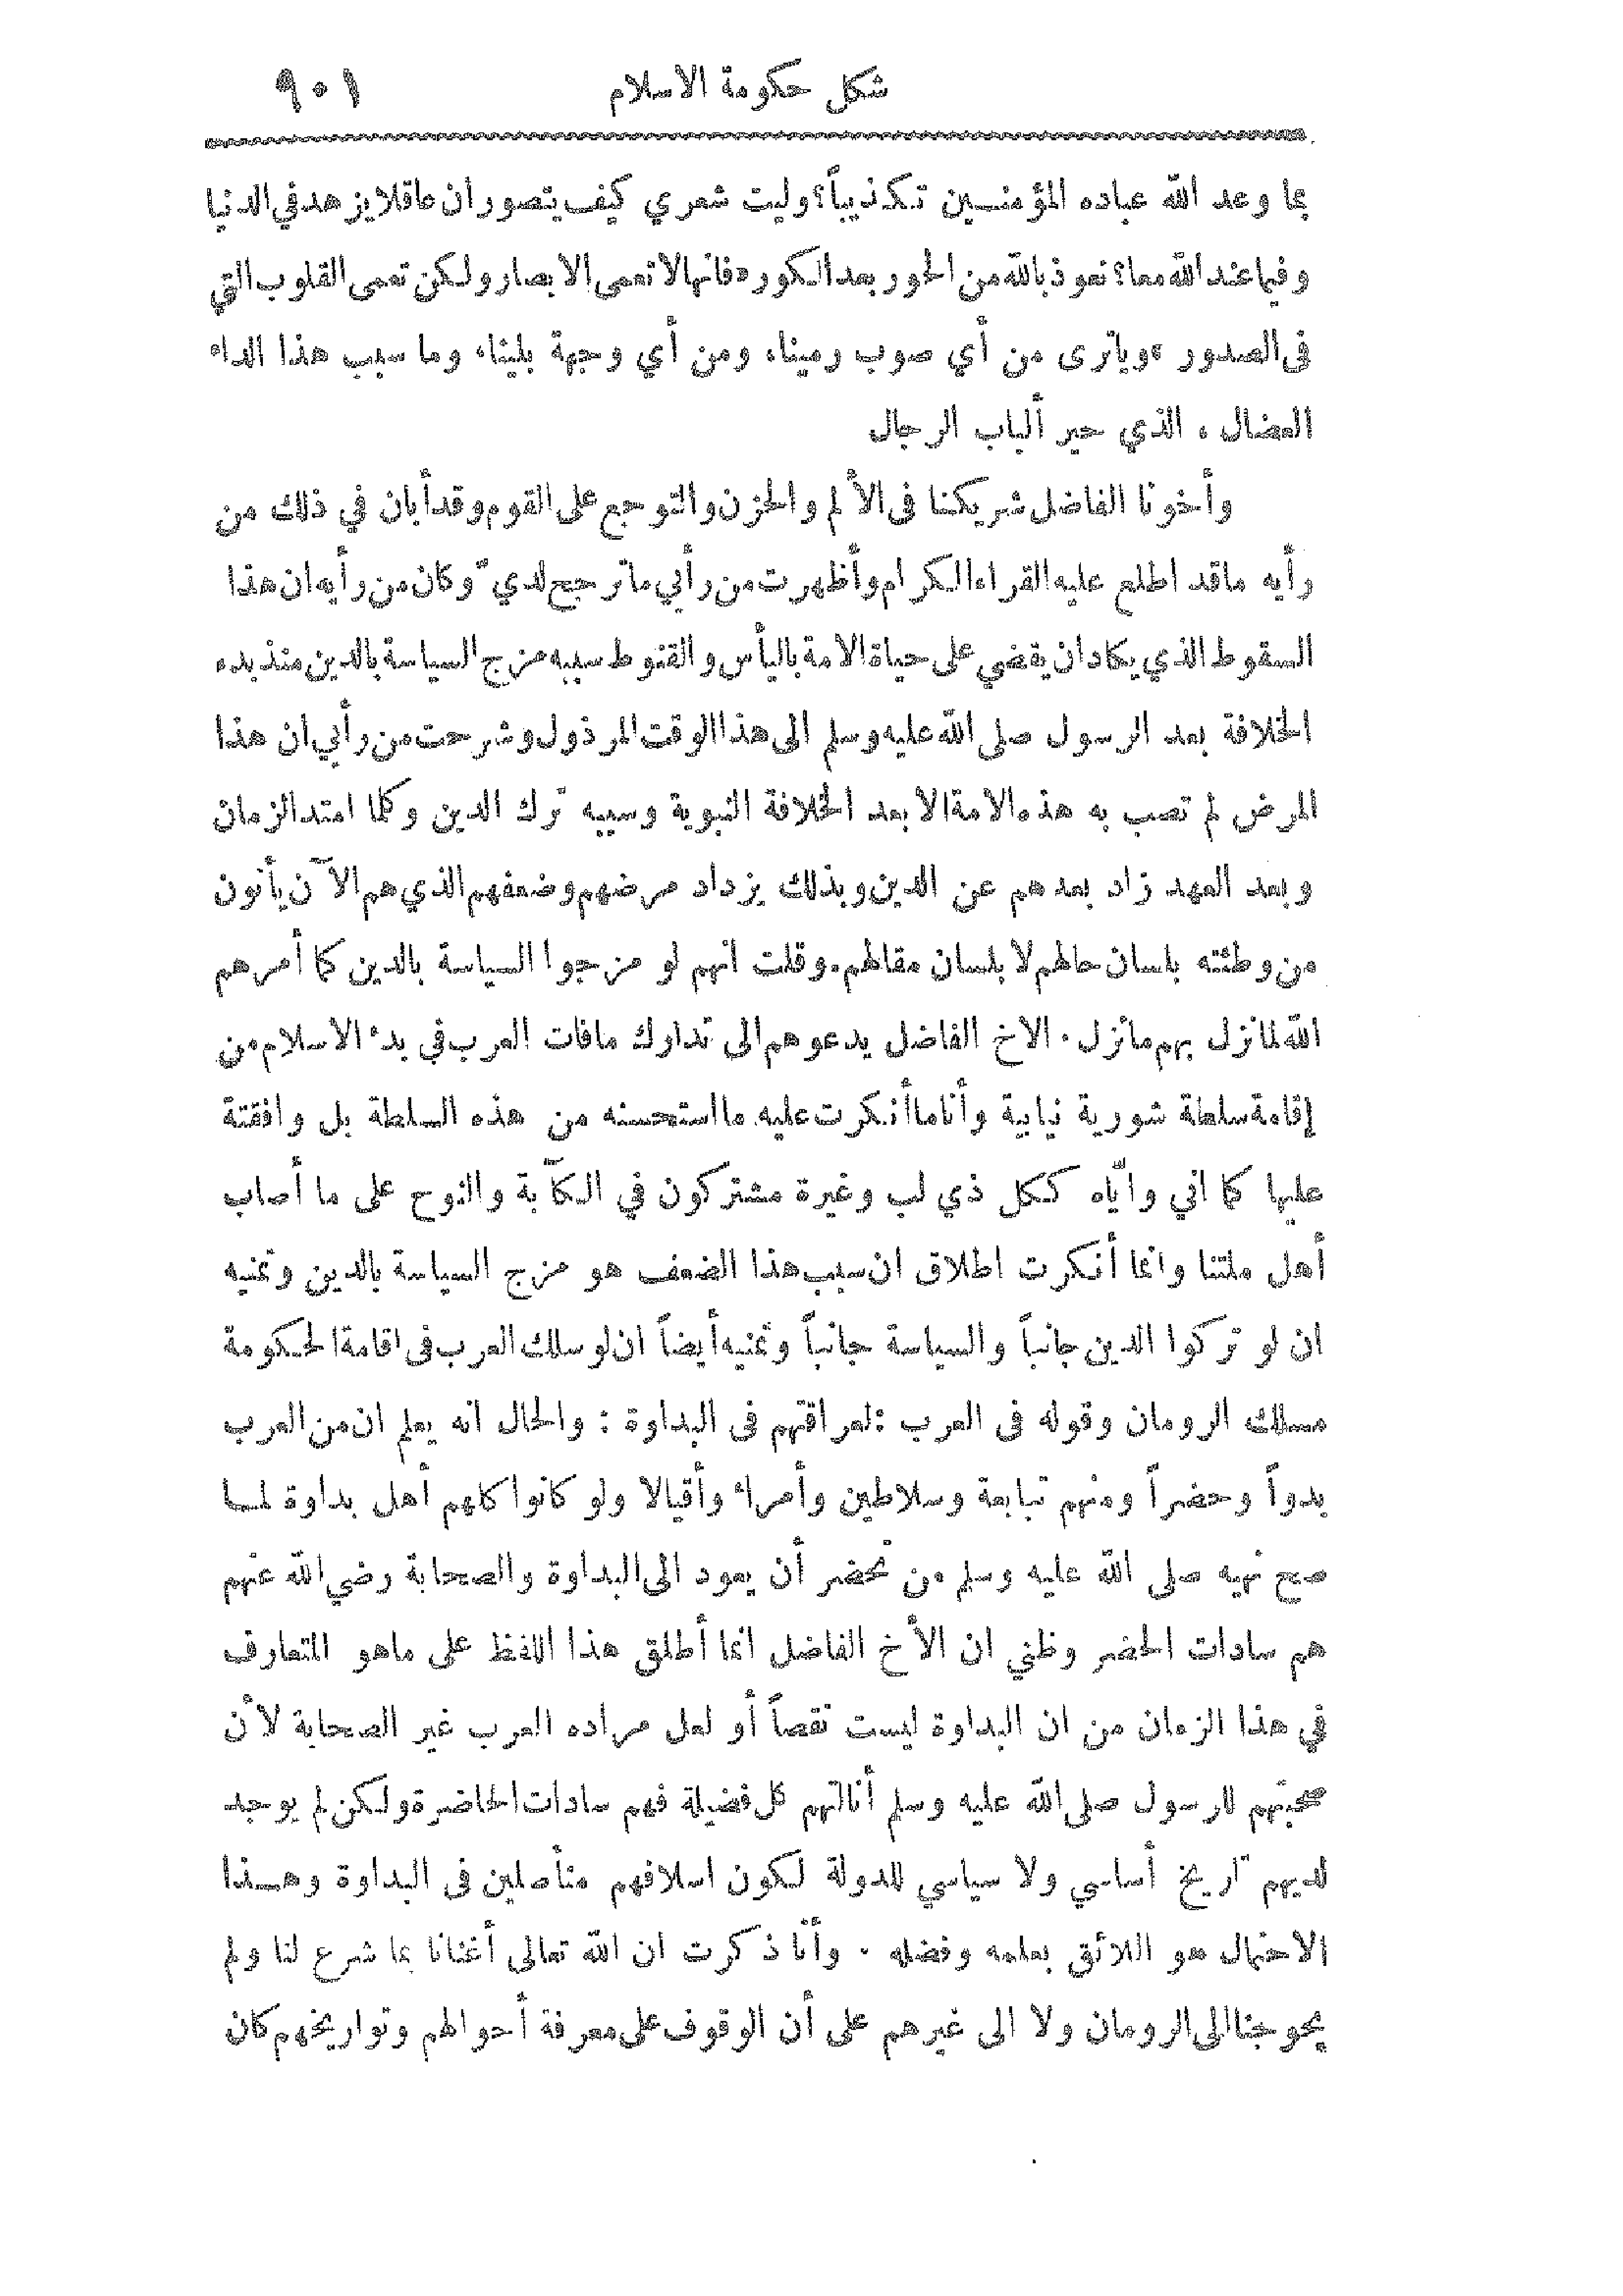 شكل حكومة الاسلام ٩٠١
بما وعد الله عباده المؤمنين تكذيباً؟ وليت شعري كيف يتصور ان عاقلا يزهد في الدنيا
وفيما عند الله معا؟ نعوذ بالله من الحور بعد الكور «فانها لا تعمى الابصار ولكن تعمى القلوب التي
في الصدور» ويا ترى من أي صوب رمينا، ومن أي وجهة بلينا، وما سبب هذا الداء
العضال ، الذي حير ألباب الرجال
وأخونا الفاضل شريكنا في الألم والحزن والتوجع على القوم وقد أبان في ذلك من
رأيه ما قد اطلع عليه القراء الكرام وأظهرت من رأيي ما ترجح لديّ وكان من رأيه ان هذا
السقوط الذي يكاد ان يقضي على حياة الامة باليأس والقنوط سببه مزج السياسة بالدين منذ بدء
الخلافة بعد الرسول صلى الله عليه وسلم الى هذا الوقت المرذول وشرحت من رأيي ان هذا
المرض لم تصب به هذه الامة الا بعد الخلافة النبوية وسببه ترك الدين وكلما امتد الزمان
وبعد العهد زاد بعدهم عن الدين وبذلك يزداد مرضهم وضعفهم الذي هم الآن يأنون
من وطئته بلسان حالهم لا بلسان مقالهم. وقلت انهم لو مزجوا السياسة بالدين كما أمرهم
الله لما نزل بهم ما نزل . الاخ الفاضل يدعوهم الى تدارك ما فات العرب في بدء الاسلام من
إقامة سلطة شورية نيابية وأنا ما أنكرت عليه ما استحسنه من هذه السلطة بل وافقتة
عليها كما اني وايّاه ككل ذي لب وغيرة مشتركون في الكآبة والنوح على ما أصاب
أهل ملتنا وانما أنكرت اطلاق ان سبب هذا الضعف هو مزج السياسة بالدين وتمنيه
ان لو تركوا الدين جانباً والسياسة جانباً وتمنيه أيضاً ان لو سلك العرب في اقامة الحكومة
مسلك الرومان وقوله في العرب :لعراقتهم في البداوة : والحال انه يعلم ان من العرب
بدواً وحضراً ومنهم تبابعة وسلاطين وأمراء وأقيالا ولو كانوا كلهم أهل بداوة لما
صح نهيه صلى الله عليه وسلم من تحضر أن يعود الى البداوة والصحابة رضي الله عنهم
هم سادات الحضر وظني ان الأخ الفاضل انما أطلق هذا اللفظ على ماهو المتعارف
في هذا الزمان من ان البداوة ليست نقصاً أو لعل مراده العرب غير الصحابة لأن
صحبتهم للرسول صلى الله عليه وسلم أنالتهم كل فضيلة فهم سادات الحاضرة ولكن لم يوجد
لديهم تاريخ أساسي ولا سياسي للدولة لكون اسلافهم متأصلين في البداوة وهذا
الاحتمال هو اللائق بعلمه وفضله . وأنا ذكرت ان الله تعالى أغنانا بما شرع لنا ولم
يحوجنا الى الرومان ولا الى غيرهم على أن الوقوف على معرفة أحوالهم وتواريخهم كان